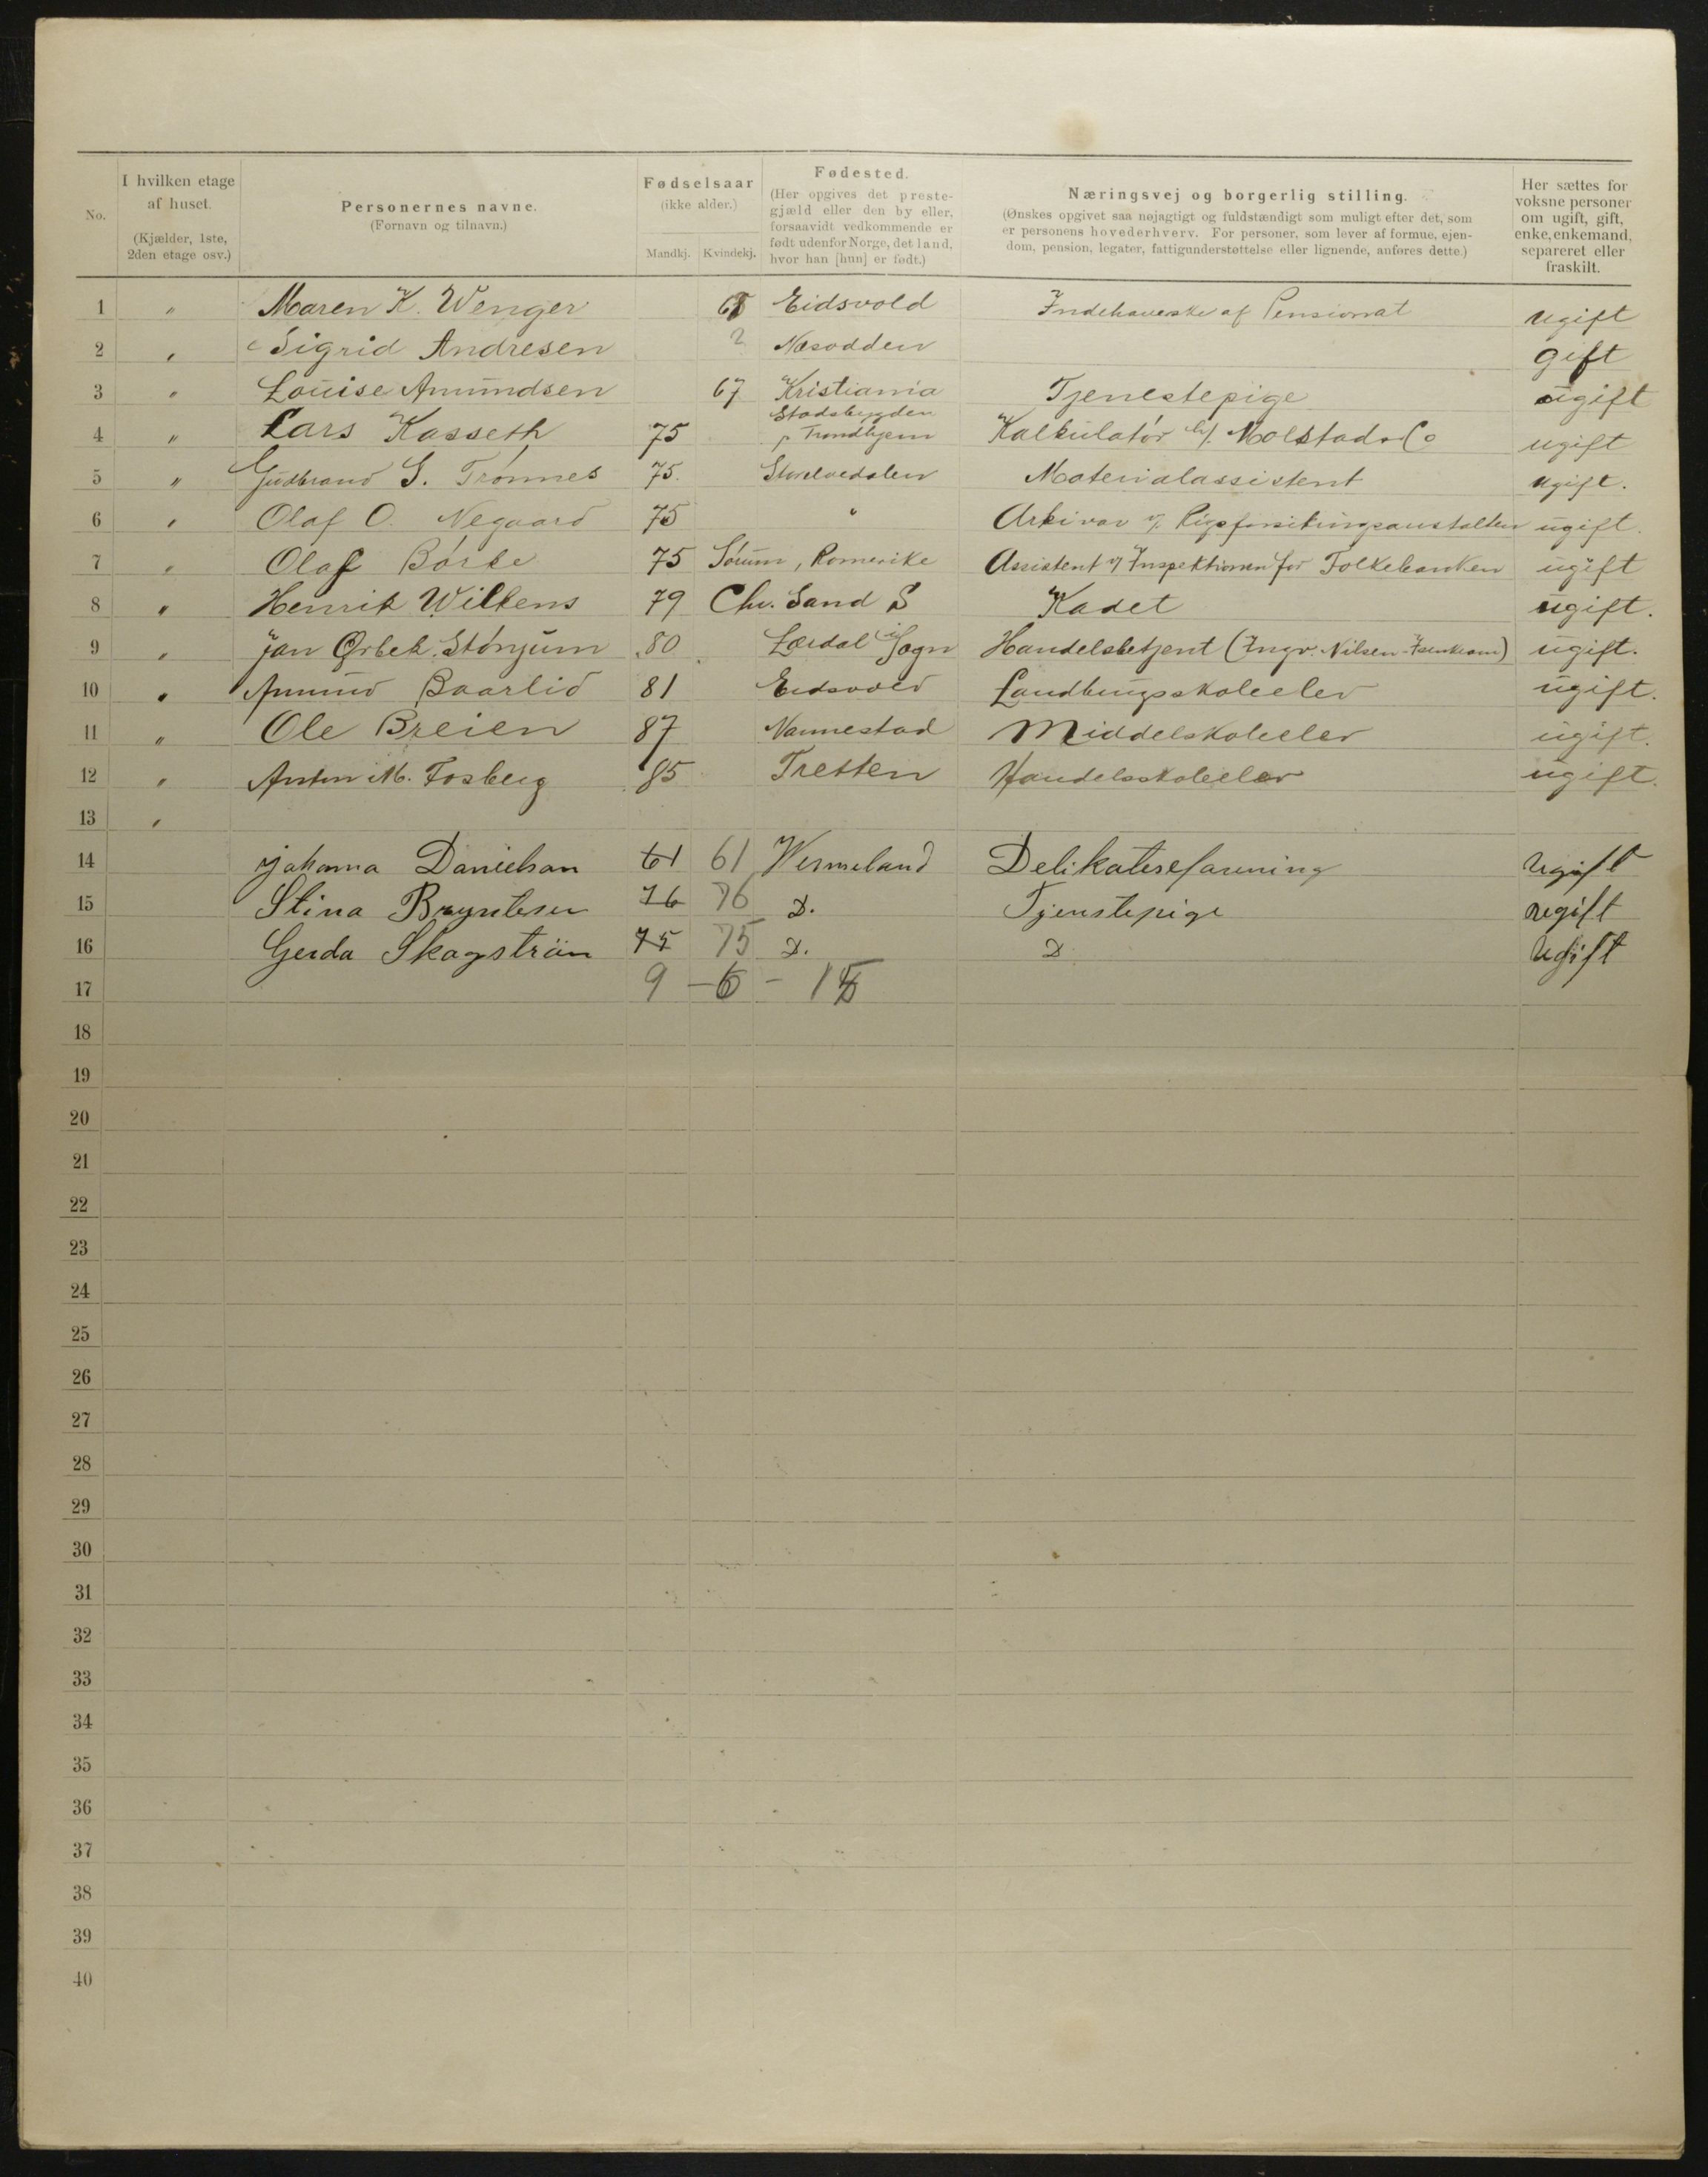 No.
I hvilken etage af huset.
(Kjælder, 1ste, 2den etage osv.)
Personernes navne.
(Fornavn og tilnavn.)
Fødselsaar
(ikke alder.)
Mandkj. Kvindekj.
Fødested.
(Her opgives det prestegjæld eller den by eller, forsaavidt vedkommende er født udenfor Norge, det land, hvor han [hun] er født.)
Næringsvej og borgerlig stilling.
(Ønskes opgivet saa nøjagtigt og fuldstændigt som muligt efter det, som er personens hovederhverv. For personer, som lever af formue, ejendom, pension, legater, fattigunderstøttelse eller lignende, anføres dette.)
Her sættes for voksne personer om ugift, gift, enke, enkemand, separeret eller fraskilt.
1 " Maren K. Wenger Eidsvold Indehaverske af Pensionat ugift
2 " Sigrid Andresen ? Næsodden gift
3 " Louise Amundsen 67 Kristiania Tjenestepige ugift
4 " Lars Kasseth 75 Stadsbygden p. Trondhjem Kalkulatór Molstad & Co ugift
5 " Gudbrand S. Trønnes 75. ugift.
Materialassistent
6 " Olaf O. Negaard 75 " Arkivar v/ Rigsforsikringsanstalten ugift.
7 " Olaf Børke 75 Sørum, Romerike Assistent v/ Inspektionen for Folkebanken ugift
8 " Henrik Wilkens 79 Chr. Sand S Kadet ugift.
9 " Jan Ørbek Stónjum 80 Lærdal i Sogn Handelsbetjent (Ingv. Nilsen Isenkram) ugift.
10 " Amund Baarlid 81 Eidsvold Landbrugsskoleelev ugift.
11 " Ole Breien 87 Nannestad Middelskoleelev ugift.
12 " Anton M. Fosberg 85 Tretten Handelsskoleelev ugift.
13 "
14 Johanna Danielson 61 61 Wermeland Delikatesefarening Ugift
15 Stina Bryntesen 76 76 D. Tjenstepige ugift
16 Gerda Skagström 75 75 D. D Ugift
17 9 - 6 - 15
18
19
20
21
22
23
24
25
26
27
28
29
30
31
32
33
34
35
36
37
38
39
40